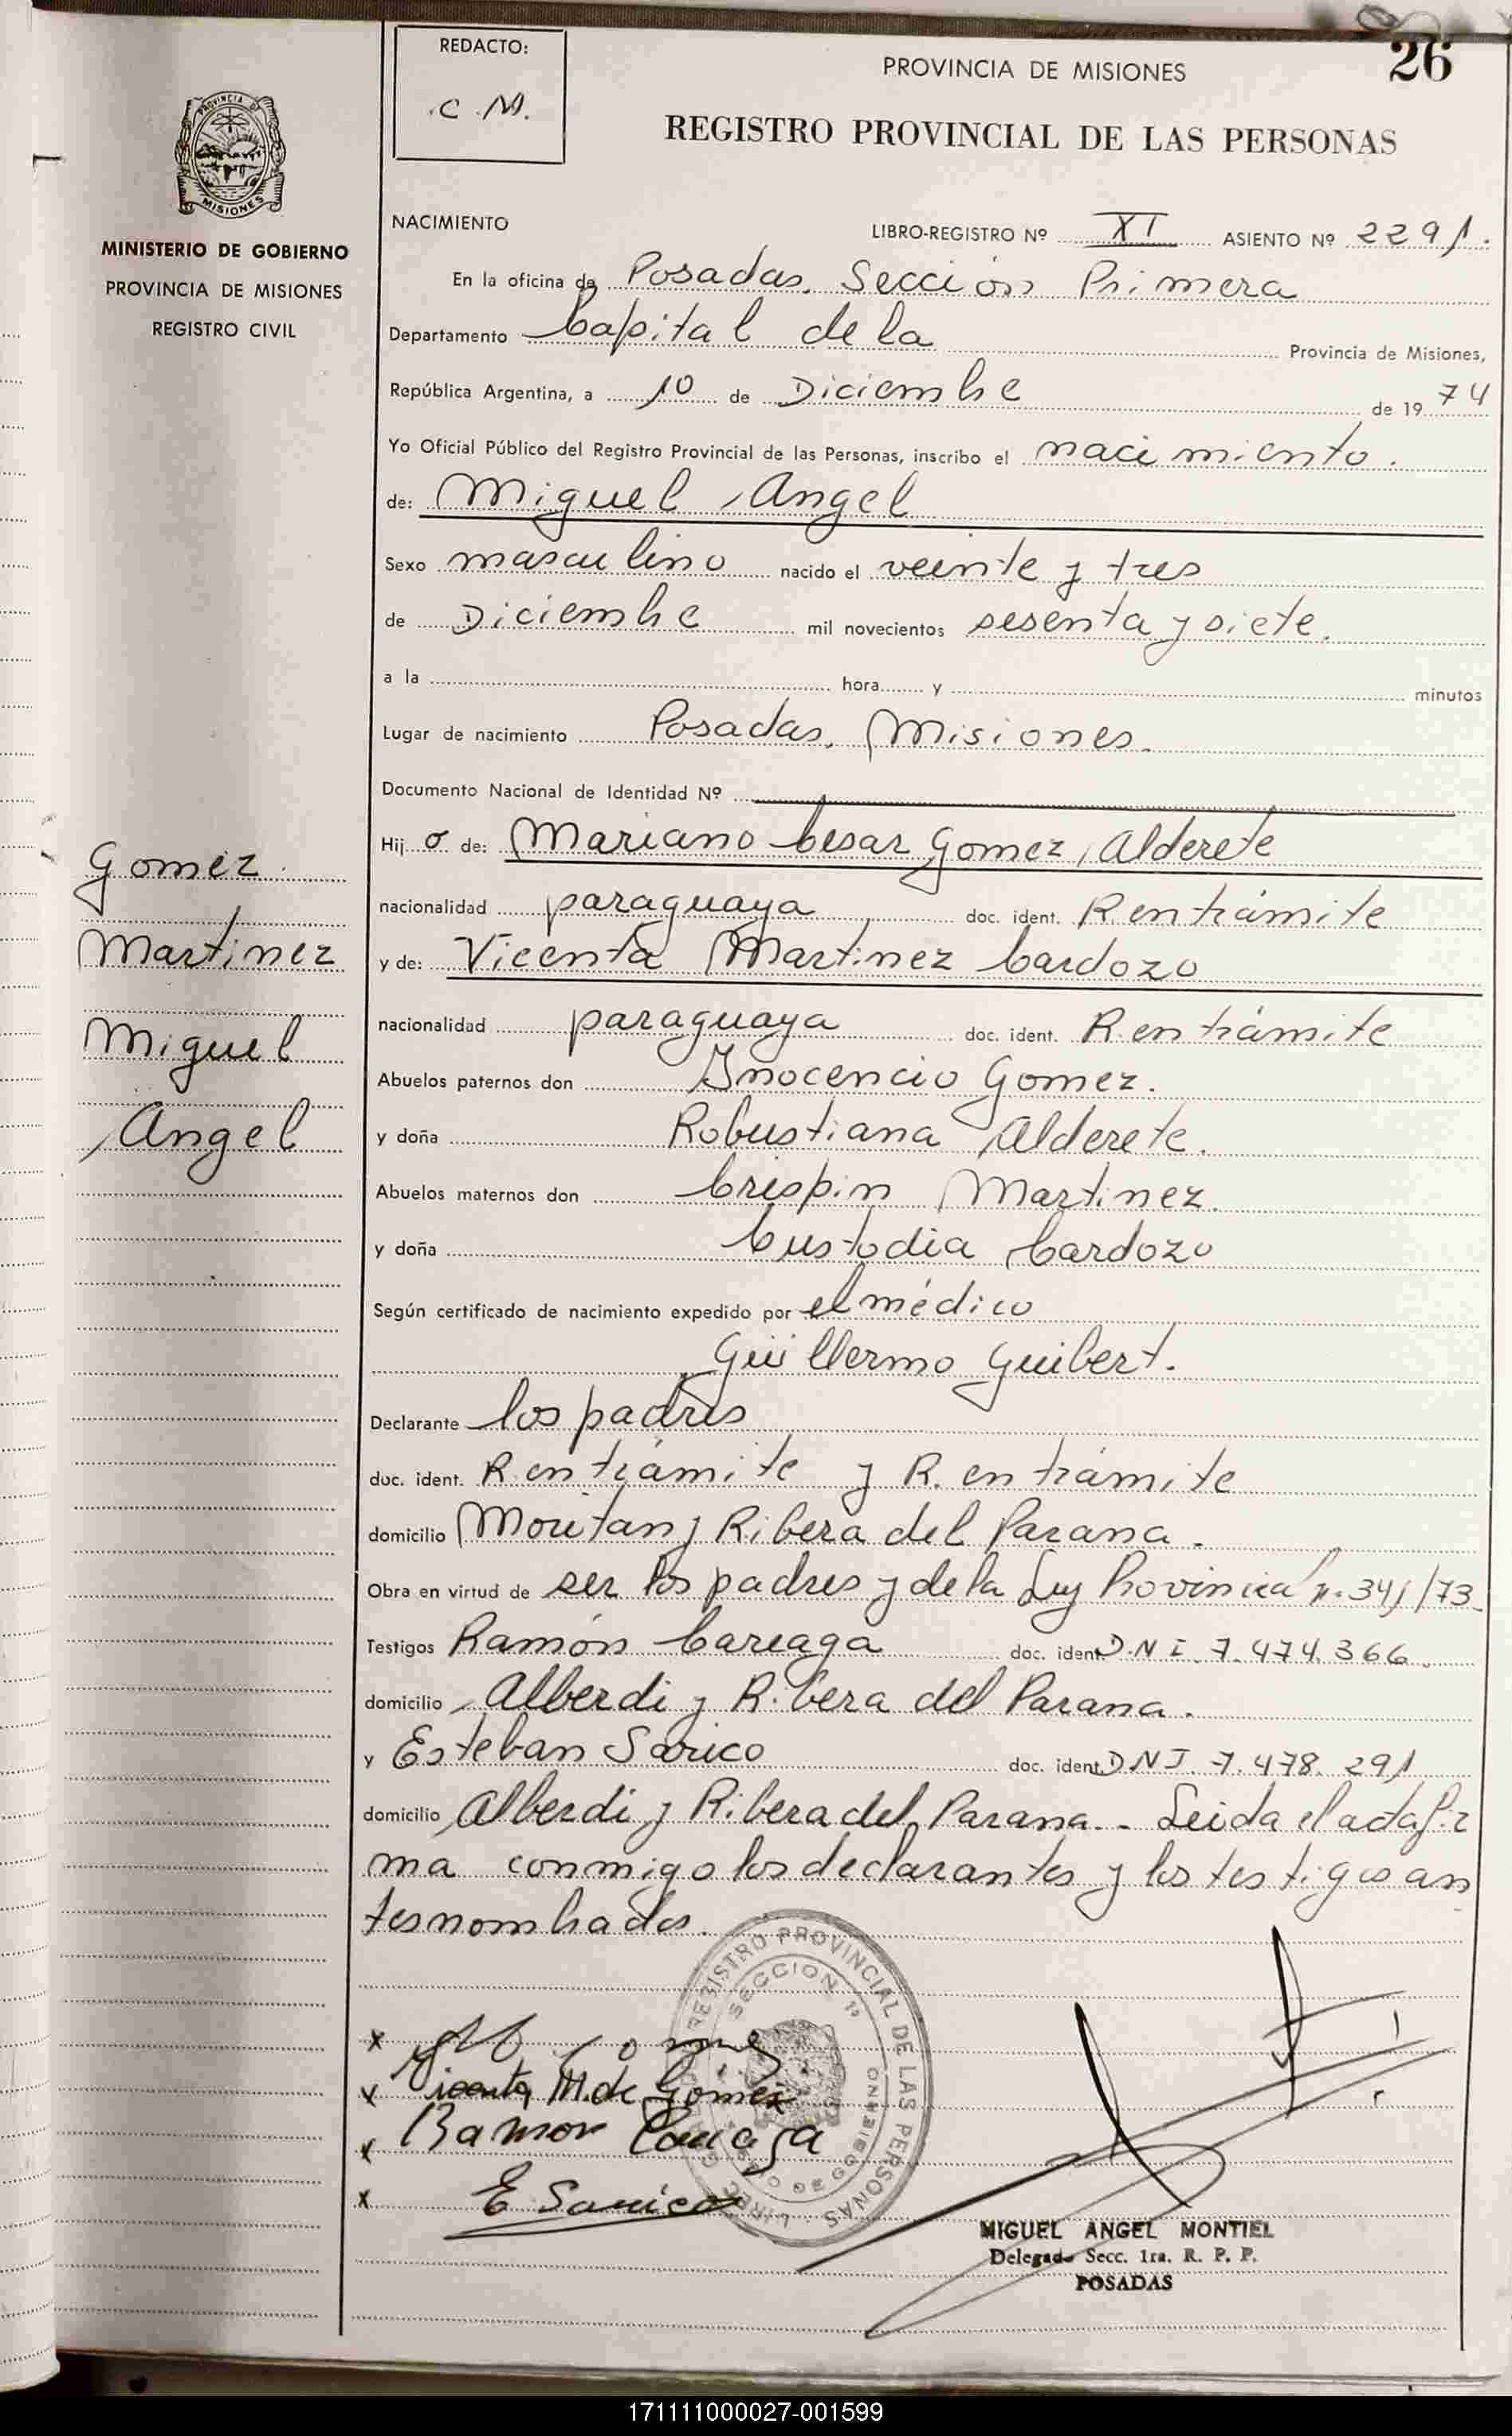 26
REDACTO:
C.M.
PROVINCIA DE MISIONES
REGISTRO PROVINCIAL DE LAS PERSONAS
PROVINCIA DE
MISIONES
MINISTERIO DE GOBIERNO
PROVINCIA DE MISIONES
REGISTRO CIVIL
Gomez
Martinez
Miguel
Angel
NACIMIENTO LIBRO-REGISTRO Nº XI ASIENTO Nº 2291.
En la oficina de Posadas. Sección Primera
Departamento Capital de la Provincia de Misiones,
República Argentina, a 10 de Diciembre de 19 74
Yo Oficial Público del Registro Provincial de las Personas, inscribo el nacimiento.
de: Miguel Angel
Sexo masculino nacido el veinte y tres
de Diciembre mil novecientos sesenta y siete.
a la hora y minutos
Lugar de nacimiento Posadas. Misiones.
Documento Nacional de Identidad Nº
Hij o de: Mariano Cesar Gomez Alderete
nacionalidad paraguaya doc. ident. R. en trámite
y de: Vicenta Martinez Cardozo
nacionalidad paraguaya doc. ident. R. en trámite
Abuelos paternos don Inocencio Gomez.
y doña Robustiana Alderete.
Abuelos maternos don Crispin Martinez.
y doña Custodia Cardozo
Según certificado de nacimiento expedido por el médico
Guillermo Guibert.
Declarante los padres
doc. ident. R. en trámite y R. en trámite
domicilio y Ribera del Parana.
Obra en virtud de ser los padres y de la Ley Provincial n. 341/73.
Testigos Ramón Careaga doc. ident D.N.I. 7.474.366.
domicilio Alberdi y Ribera del Parana.
y Esteban Sarico doc. ident D.N.I. 7.478.291
domicilio Alberdi y Ribera del Parana.- Leida el acta fir
ma conmigo los declarantes y los testigos an
tes nombrados.
REGISTRO PROVINCIAL DE LAS PERSONAS
SECCION 1ª
GOBIERNO
x
x Vicenta M. de Gomez
x Ramon Careaga
x E Sarico
MIGUEL ANGEL MONTIEL
Delegado Secc. 1ra. R. P. P.
POSADAS
171111000027-001599